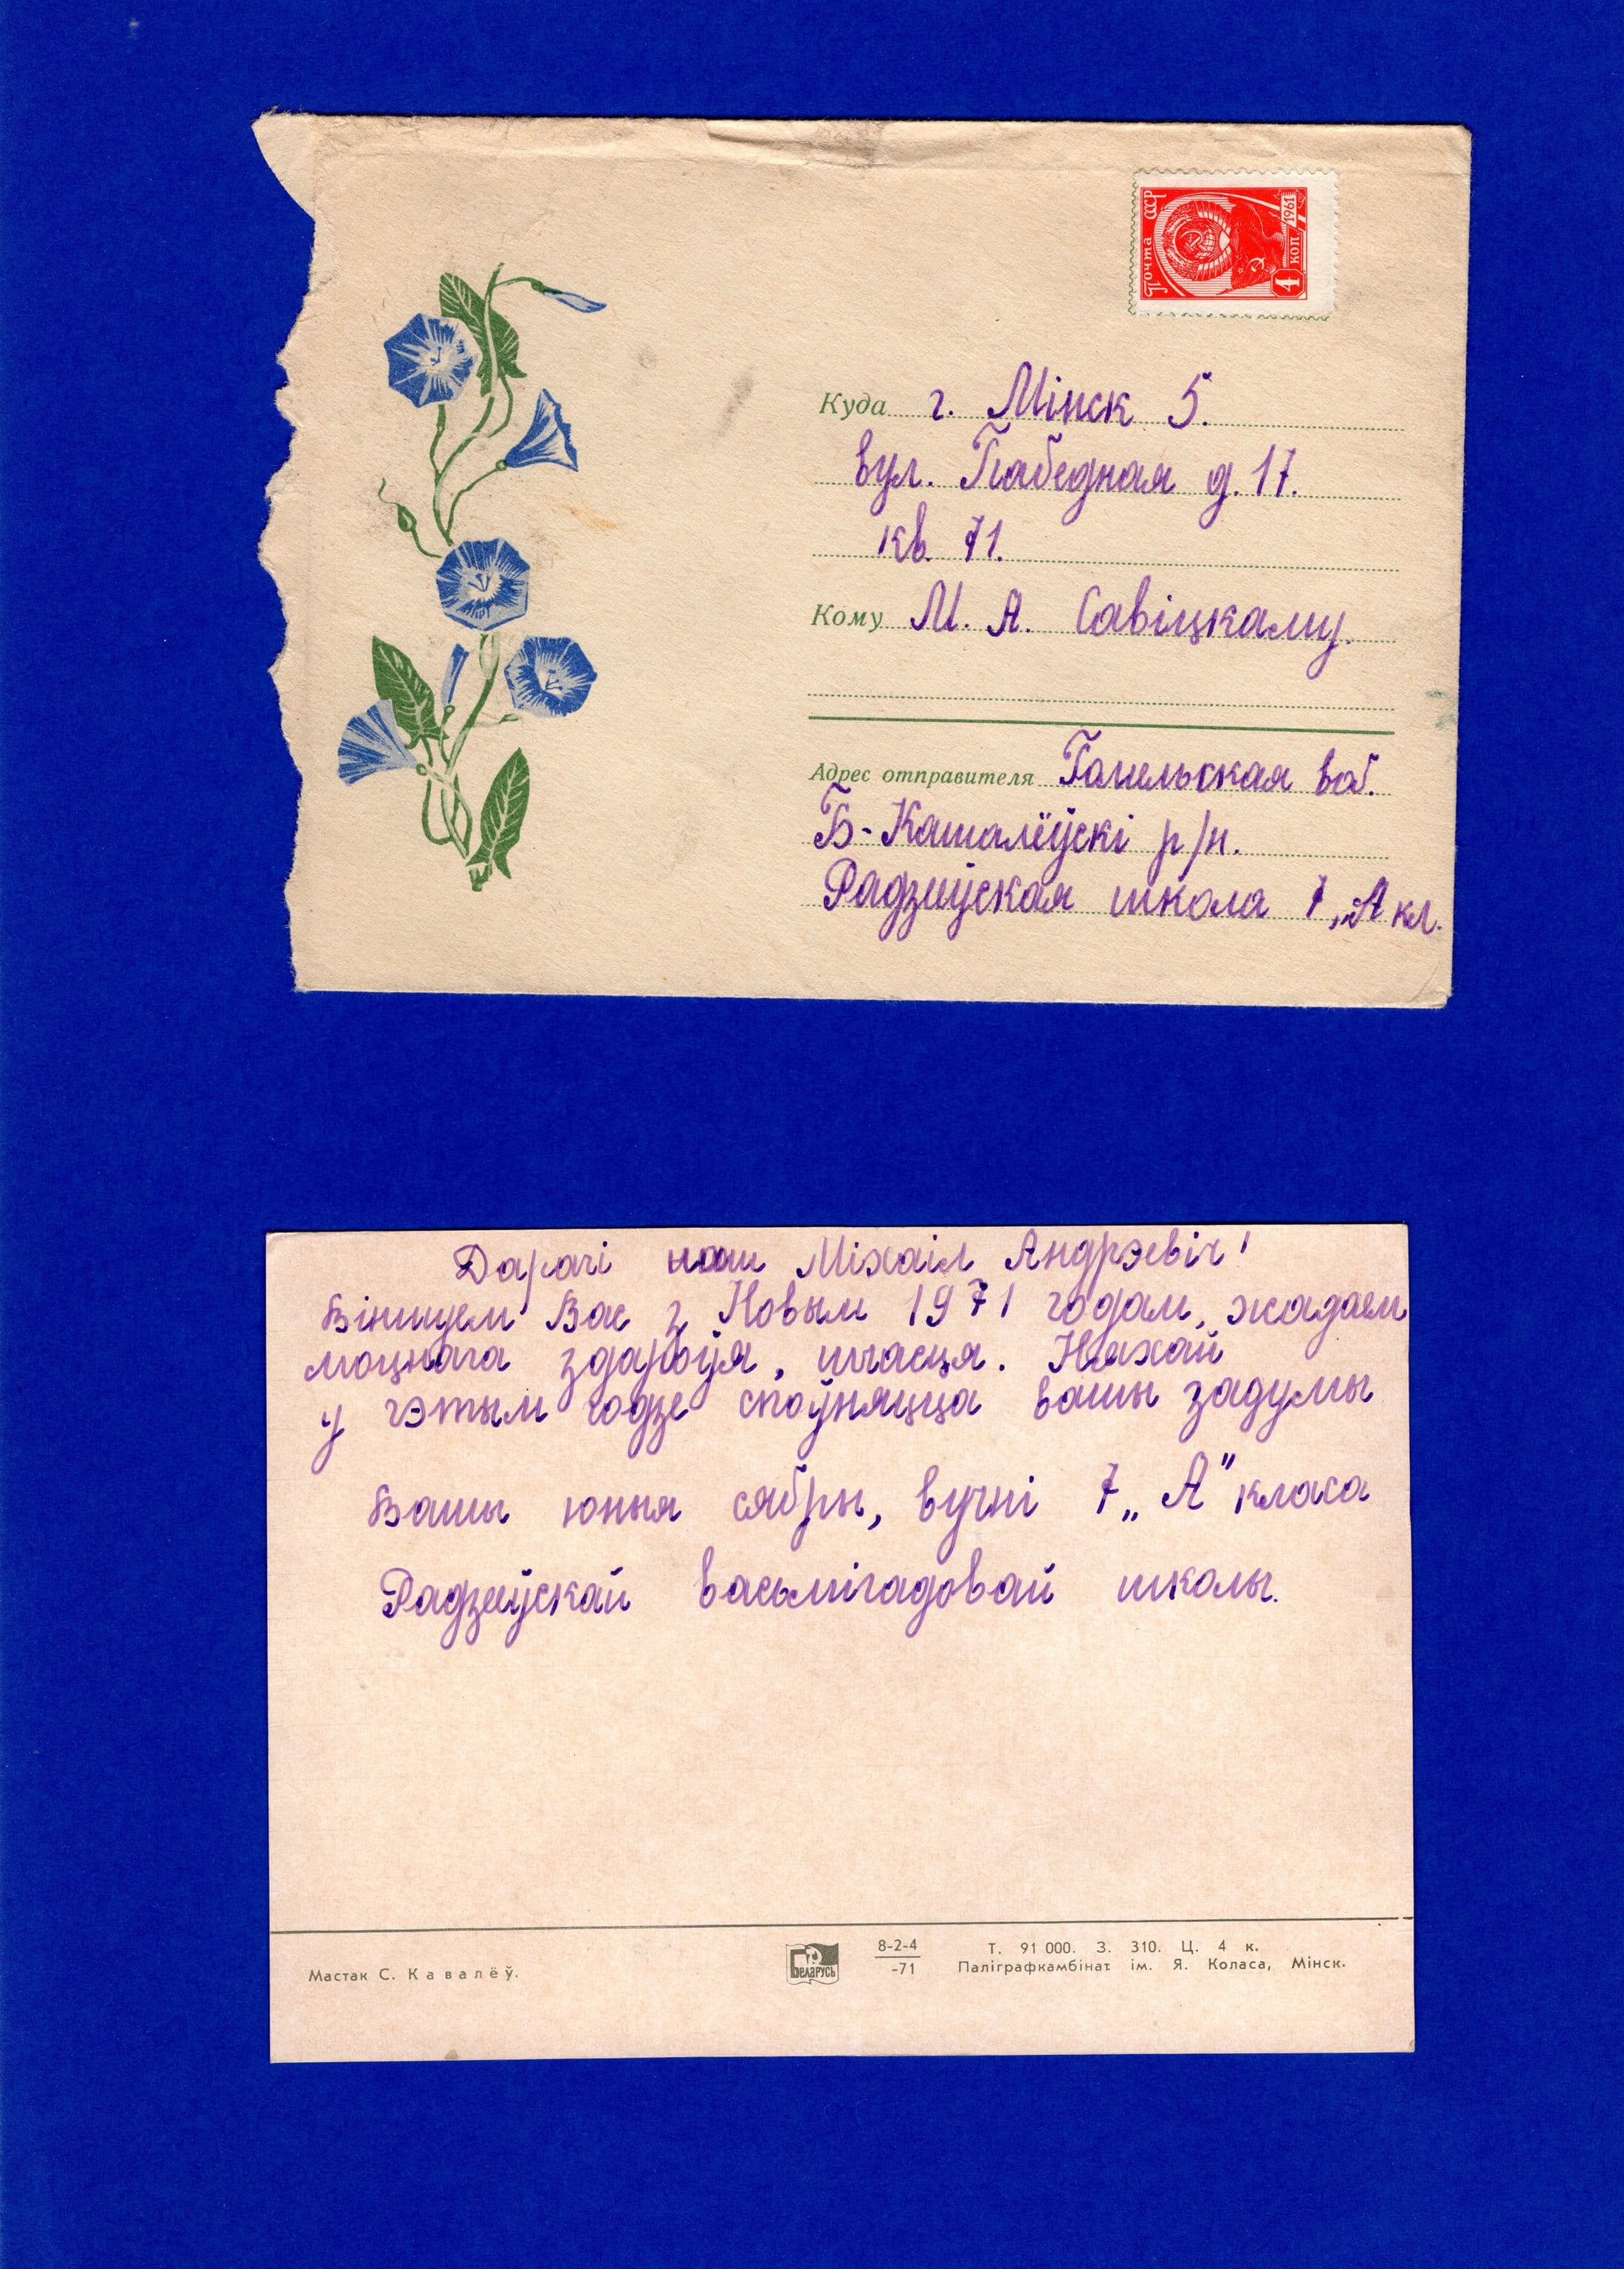 Почта СССР
1961
4 коп.
Куда г. Мінск 5.
вул. Пабедная д. 17.
кв. 71.
Кому М. А. Савіцкаму.
Адрес отправителя Гомельская воб.
Б-Кашалёўскі р/н.
Радзеўская школа 7 „А кл.
Дарагі наш Міхаіл Андрэевіч!
Віншуем Вас з Новым 1971 годам, жадаем
моцнага здароўя, шчасця. Няхай
у гэтым годзе споўняцца вашы задумы
Вашы юныя сябры, вучні 7 „А" класа
Радзеўскай васьмігадовай школы.
Мастак С. Кавалёў.
Беларусь
8-2-4
-71
Т. 91 000. З. 310. Ц. 4 к.
Паліграфкамбінат ім. Я. Коласа, Мінск.